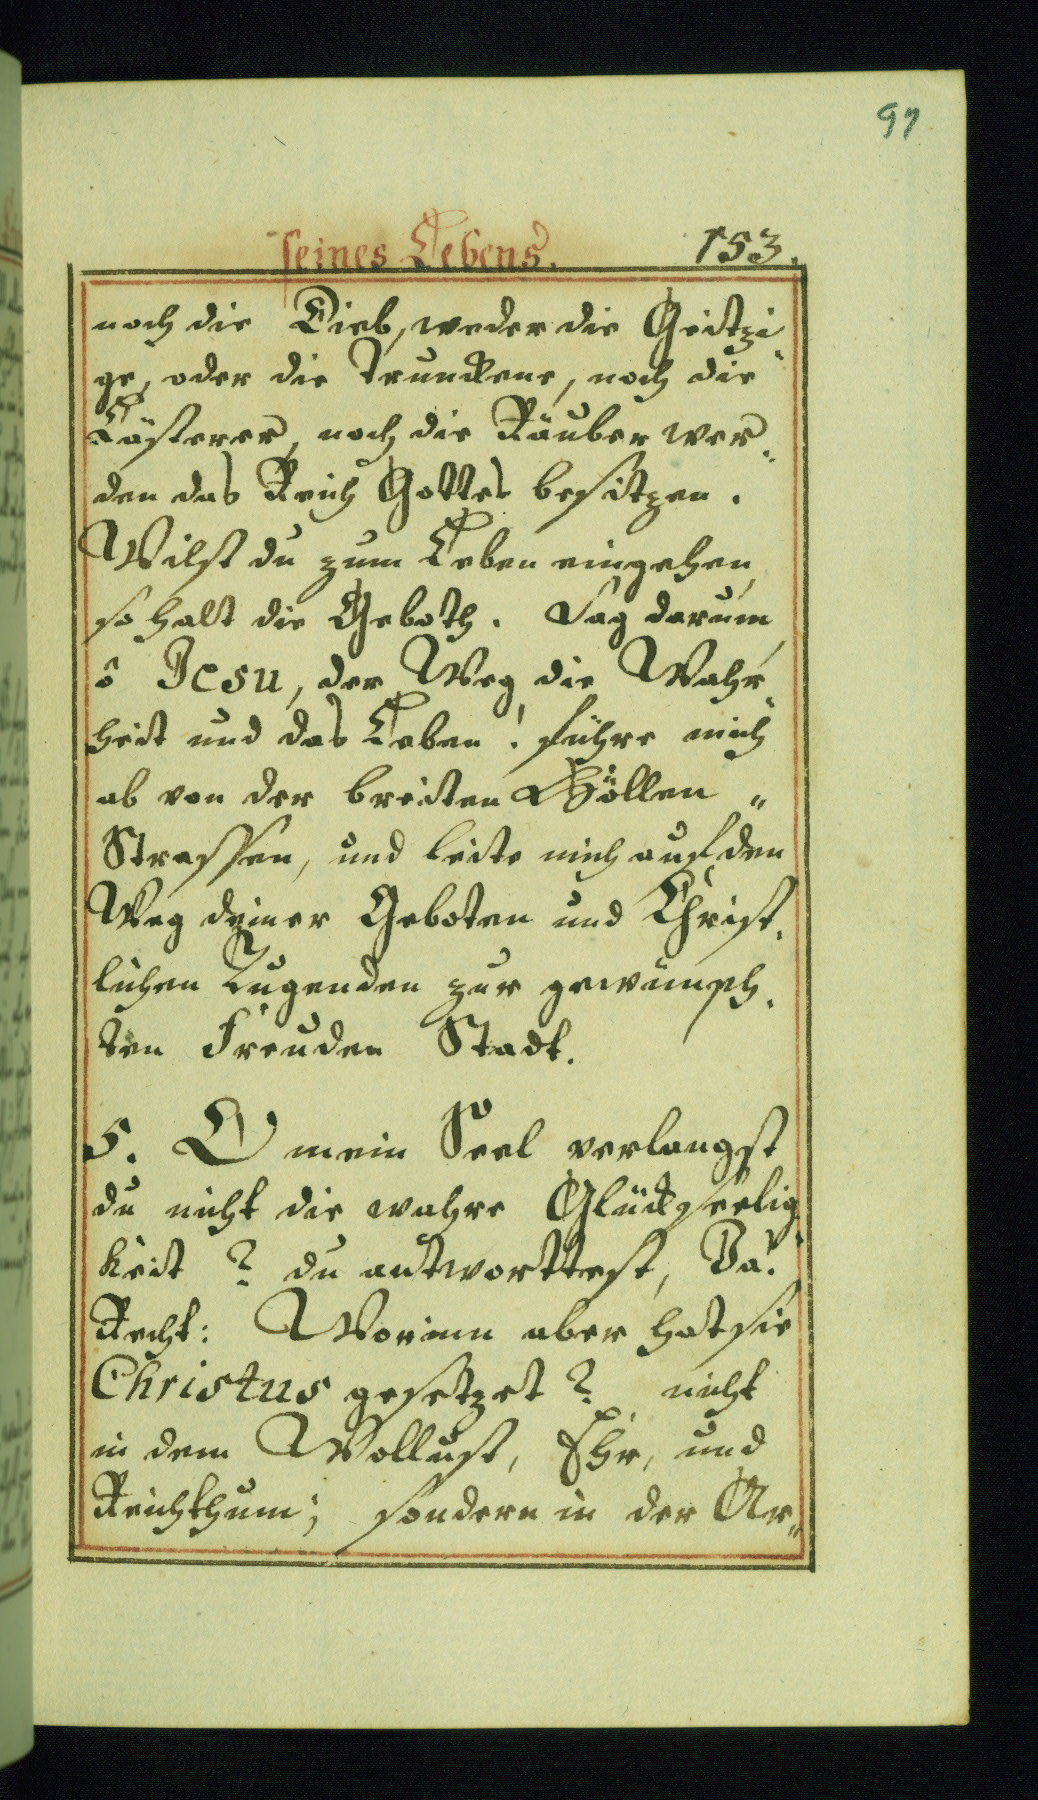 97
seines Lebens. 153.
noch die Dieb, weder die Geitzi„
ge, oder die Trunckene, noch die
Lästerer, noch die Räuber wer„
den das Reich Gottes besitzen.
Wilst du zum Leben eingehen,
so halt die Geboth. Sag darum,
ô Jesu, der Weg, die Wahr„
heit und das Leben! führe mich
ab von der breiten Höllen„
Strassen, und leite mich auf den
Weg deiner Geboten und Christ„
lichen Tugenden zur gewünsch„
ten Freuden Stadt.
5. O mein Seel verlangst
du nicht die wahre Glückseelig„
keit? du antworttest, Ja.
Recht: Worinn aber hat sie
Christus gesetzet? nicht
in dem Wollust, Ehr, und
Reichthum; sondern in der Ar„